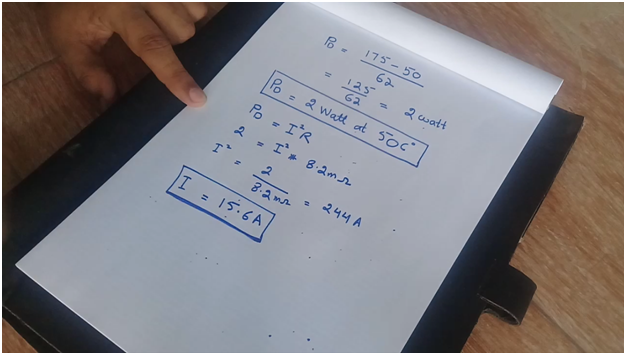 P_D = 175 - 50 / 62
= 125 / 62 = 2 watt
P_D = 2 Watt at 50C°
P_D = I²R
2 = I² * 8.2mΩ
I² = 2 / 8.2mΩ = 244 A
I = 15.6A